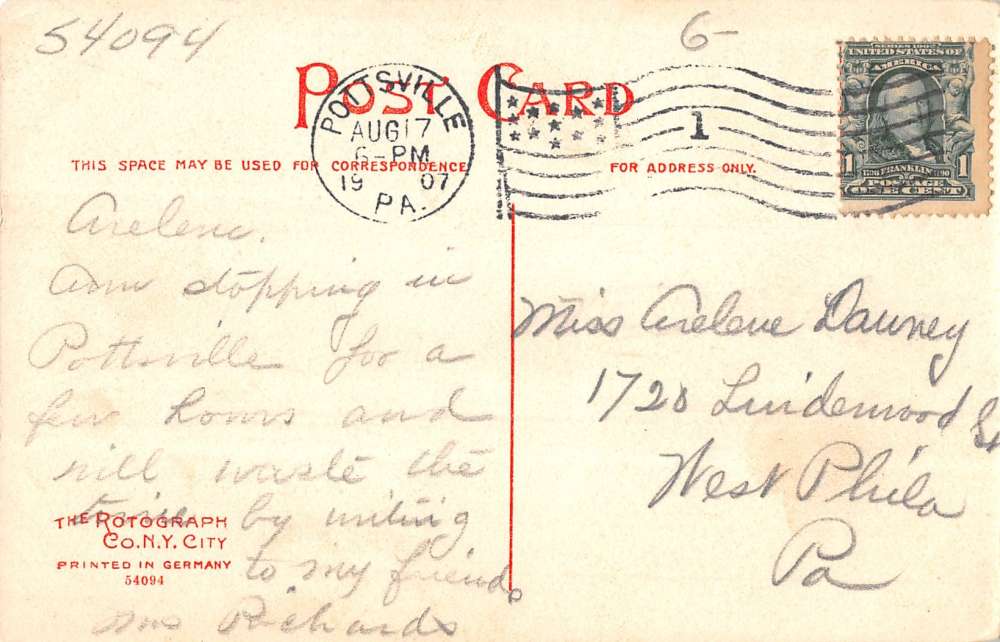 54094
6-
POST CARD
POTTSVILLE
AUG 17
6-PM
19 07
PA.
1
SERIES 1902
UNITED STATES OF
AMERICA
1 1706 FRANKLIN 1790 1
POSTAGE
ONE CENT
THIS SPACE MAY BE USED FOR CORRESPONDENCE
FOR ADDRESS ONLY.
Arelene.
Am stopping in
Pottsville for a
few hours and
will waste the
time by writing
to my friend.
Mrs Richards
THE ROTOGRAPH
CO. N.Y. CITY
PRINTED IN GERMANY
54094
Miss Arelene Dawney
1720 Lindenwood St
West Phila
Pa